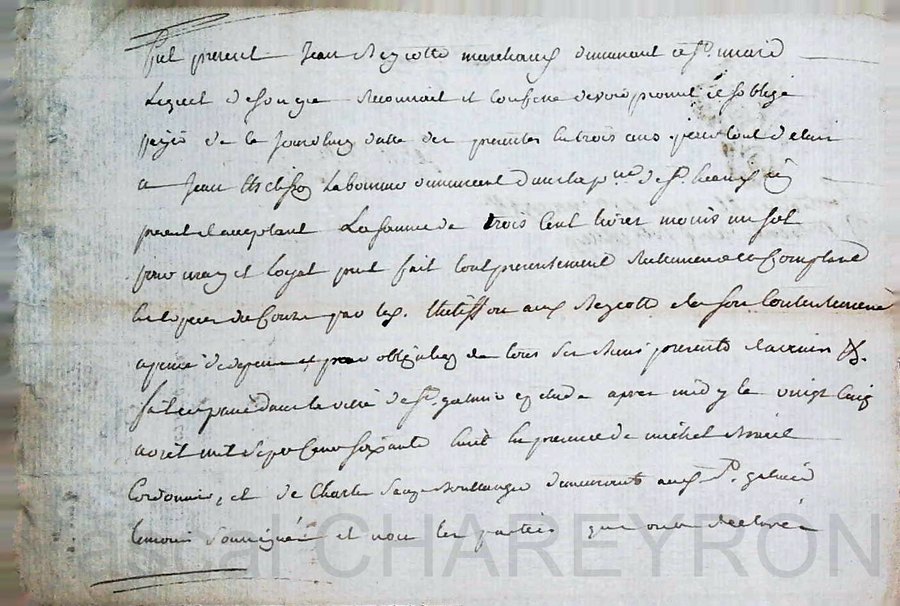 fut present Jean Reycotte marchand demeurant
Lequel de son gré Reconnait et Confesse devoir promet et soblige
payer de ce Jourdhuy datte des presentes en trois ans pour tout delai
a Jean laboureur demeurant dans la p
present et acceptant La somme de trois Cent livres moins un sol
pour vray et loyal pret fait tout presentement
en especes de Cours par led. aud. Reycotte a son Contentement
a peine de depens obligation de tous ses biens presents et avenir &.
fait et passé dans la ville de St. galmier etude apres midy le vingt Cinq
aoüt mil sept Cent soixante huit en presence de michel
Cordonnier, et de Charle Boullanger demeurants aud. St. galmier
temoins soussignés et non les parties qui ont declarés
Pascal CHAREYRON